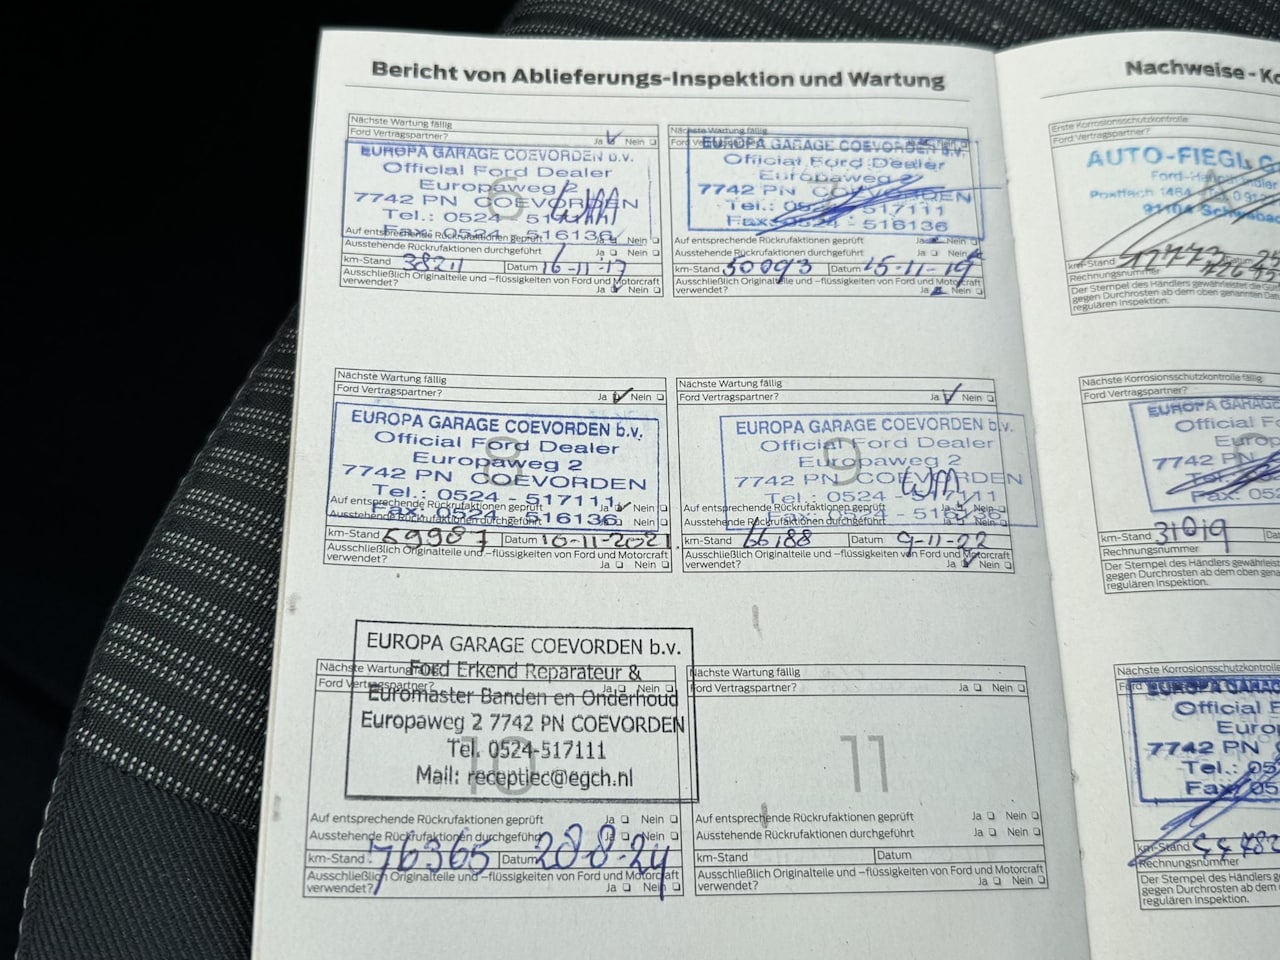 Bericht von Ablieferungs-Inspektion und Wartung
Nächste Wartung fällig
Ford Vertragspartner? Ja Nein
EUROPA GARAGE COEVORDEN b.v.
Official Ford Dealer
Europaweg 2
7742 PN COEVORDEN
Tel.: 0524 - 517111
Fax: 0524 - 516136
Auf entsprechende Rückrufaktionen geprüft Ja Nein
Ausstehende Rückrufaktionen durchgeführt
km-Stand 38211 Datum 16-11-17
Ausschließlich Originalteile und –flüssigkeiten von Ford und Motorcraft
verwendet? Ja Nein
Nächste Wartung fällig
Ford
EUROPA GARAGE COEVORDEN b.v.
Official Ford Dealer
Europaweg 2
7742 PN COEVORDEN
Tel.: 0524 - 517111
Fax: 0524 - 516136
Auf entsprechende Rückrufaktionen geprüft Ja Nein
Ausstehende Rückrufaktionen durchgeführt Nein
km-Stand 50093 Datum 15-11-19
Ausschließlich Originalteile und –flüssigkeiten von Ford und Motorcraft
verwendet? Ja Nein
Nächste Wartung fällig
Ford Vertragspartner? Ja Nein
8
EUROPA GARAGE COEVORDEN b.v.
Official Ford Dealer
Europaweg 2
7742 PN COEVORDEN
Tel.: 0524 - 517111
Fax: 0524 - 516136
Auf entsprechende Rückrufaktionen geprüft Ja Nein
Ausstehende Rückrufaktionen durchgeführt Nein
km-Stand 59987 Datum 10-11-2021
Ausschließlich Originalteile und –flüssigkeiten von Ford und Motorcraft
verwendet? Ja Nein
Nächste Wartung fällig
Ford Vertragspartner? Ja Nein
9
EUROPA GARAGE COEVORDEN b.v.
Official Ford Dealer
Europaweg 2
7742 PN COEVORDEN
Tel.: 0524 - 517111
Fax: 0524 - 516136
Auf entsprechende Rückrufaktionen geprüft Nein
Ausstehende Rückrufaktionen durchgeführt Nein
km-Stand 66188 Datum 9-11-22
Ausschließlich Originalteile und –flüssigkeiten von Ford und Motorcraft
verwendet? Ja Nein
Nächste Wartung fällig
Ford Vertragspartner? Ja Nein
10
EUROPA GARAGE COEVORDEN b.v.
Ford Erkend Reparateur &
Euromaster Banden en Onderhoud
Europaweg 2 7742 PN COEVORDEN
Tel. 0524-517111
Mail: receptiec@egch.nl
Auf entsprechende Rückrufaktionen geprüft Ja Nein
Ausstehende Rückrufaktionen durchgeführt Ja Nein
km-Stand 76365 Datum 28-8-24
Ausschließlich Originalteile und –flüssigkeiten von Ford und Motorcraft
verwendet? Ja Nein
Nächste Wartung fällig
Ford Vertragspartner? Ja Nein
11
Auf entsprechende Rückrufaktionen geprüft Ja Nein
Ausstehende Rückrufaktionen durchgeführt Ja Nein
km-Stand Datum
Ausschließlich Originalteile und –flüssigkeiten von Ford und Motorcraft
verwendet? Ja Nein
Nachweise - Ko
Erste Korrosionsschutzkontrolle
Ford Vertragspartner?
AUTO-FIEGL G
Postfach 1454
km-Stand
Rechnungsnummer
Der Stempel des Händlers gewährleistet die
gegen Durchrosten ab dem oben genannten
regulären Inspektion.
Nächste Korrosionsschutzkontrolle fällig
Ford Vertragspartner?
EUROPA GARAGE
Official F
Europ
7742 PN
Tel.: 052
Fax: 052
km-Stand 31019
Rechnungsnummer
Der Stempel des Händlers gewährleis
gegen Durchrosten ab dem oben gena
regulären Inspektion.
Nächste Korrosionsschutzkontrolle
Ford
EUROPA GARAG
Official F
Euro
7742 PN
Tel.: 05
Fax: 05
km-Stand
Rechnungsnummer
Der Stempel des Händlers
gegen Durchrosten ab dem
regulären Inspektion.